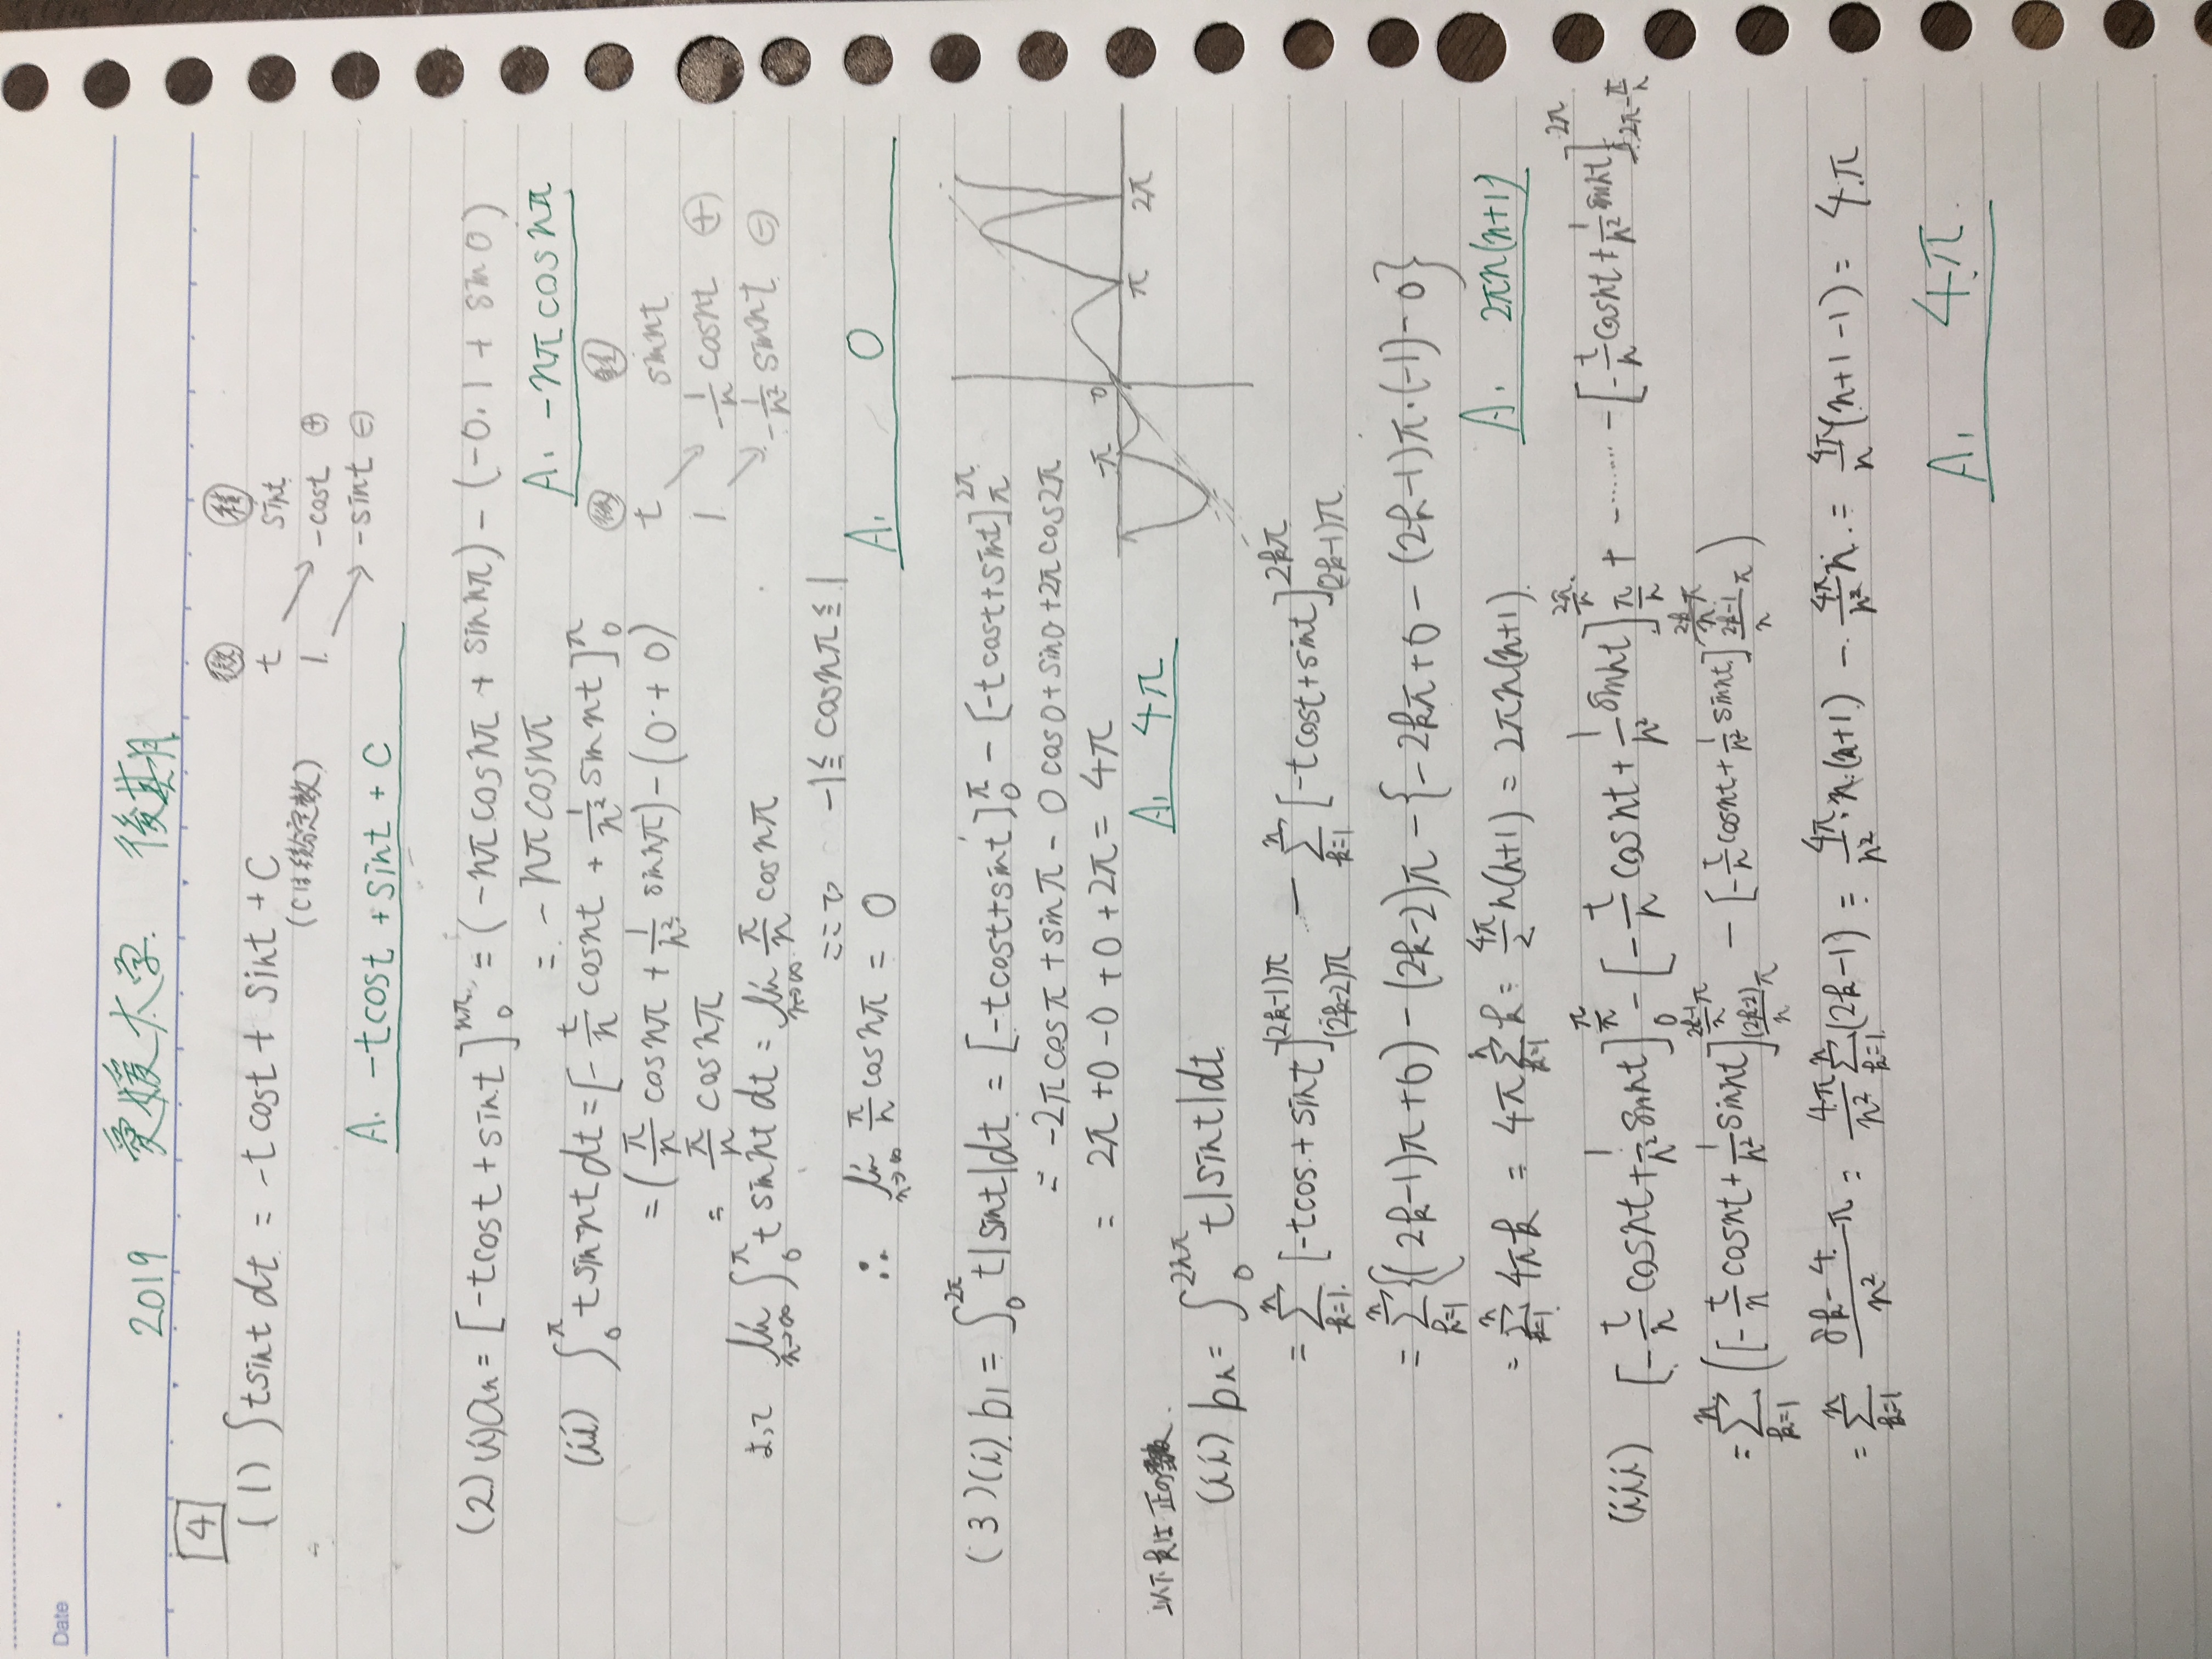 Date
2019 愛媛大学 後期
4
(1) ∫tsint dt = -tcost + sint + C
(Cは積分定数)
微 積
t sint
1 → -cost ⊕
→ -sint ⊖
A. -tcost + sint + C
(2)(i) aₙ = [-tcost + sint]₀^{nπ} = (-nπcosnπ + sinnπ) - (-0.1 + sin0)
= -nπcosnπ
A. -nπcosnπ
(ii) ∫₀^π tsinnt dt = [-t/n cosnt + 1/n² sinnt]₀^π
= (π/n cosnπ + 1/n² sinnπ) - (0 + 0)
= π/n cosnπ
t sinnt
1 -1/n cosnt ⊕
-1/n² sinnt ⊖
よって lim_{n→∞} ∫₀^π tsinnt dt = lim_{n→∞} π/n cosnπ
ここで -1 ≦ cosnπ ≦ 1
∴ lim_{n→∞} π/n cosnπ = 0
A. 0
(3)(i) b₁ = ∫₀^{2π} t|sint|dt = [-tcost+sint]₀^π - [-tcost+sint]_π^{2π}
= -2πcosπ + sinπ - 0cos0 + sin0 + 2πcos2π
= 2π + 0 - 0 + 0 + 2π = 4π
-π 0 π 2π
A. 4π
以下kは正の整数
(ii) bₙ = ∫₀^{2nπ} t|sint|dt
= Σ_{k=1}^n [-tcos. + sint]_{(2k-2)π}^{(2k-1)π} - Σ_{k=1}^n [-tcost + sint]_{(2k-1)π}^{2kπ}
= Σ_{k=1}^n {(2k-1)π + 0) - (2k-2)π - {-2kπ + 0 - (2k-1)π・(-1) - 0}
= Σ_{k=1}^n 4πk = 4π Σ_{k=1}^n k = 4π/2 n(n+1) = 2πn(n+1)
A. 2πn(n+1)
(iii) [-t/n cosnt + 1/n² sinnt]₀^{π/n} - [-t/n cosnt + 1/n² sinnt]_{π/n}^{2π/n} + …… - [-t/n cosnt + 1/n² sinnt]_{2π-π/n}^{2π}
= Σ_{k=1}^n ([-t/n cosnt + 1/n² sinnt]_{(2k-2)/n π}^{2k-1/n π} - [-t/n cosnt + 1/n² sinnt]_{2k-1/n π}^{2k/n π})
= Σ_{k=1}^n 8k-4/n² π = 4π/n² Σ_{k=1}^n (2k-1) = 4π/n² n(n+1) - 4π/n² n = 4π/n (n+1-1) = 4π
A. 4π